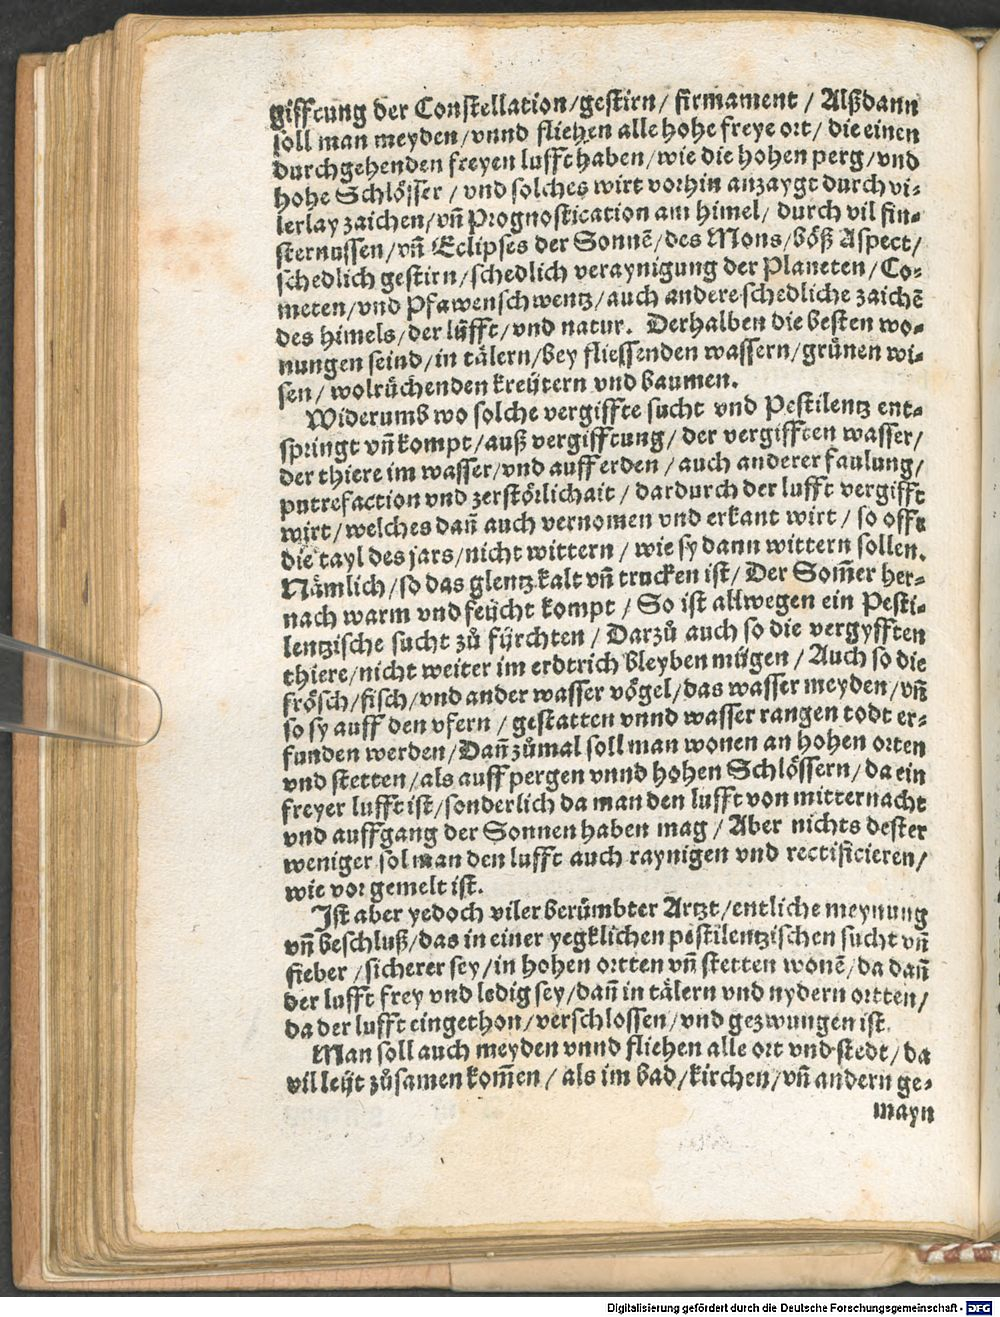 gifftung der Constellation/gestirn/ firmament / Alßdann
soll man meyden/vnnd fliehen alle hohe freye ort/ die einen
durchgehenden freyen lufft haben/wie die hohen perg/vnd
hohe Schlösser / vnd solches wirt vorhin anzaygt durch vi-
lerlay zaichen/vñ Prognostication am himel/ durch vil fin-
sternussen/vñ Eclipses der Sonnē/des Mons/böß Aspect/
schedlich gestirn/schedlich veraynigung der Planeten/Co-
meten/vnd Pfawenschwentz/auch andere schedliche zaichē
des himels/der lüfft/vnd natur. Derhalben die besten wo-
nungen seind/in tälern/bey fliessenden wassern/grünen wi-
sen/ wolrüchenden kreütern vnd baumen.
Widerumb wo solche vergiffte sucht vnd Pestilentz ent-
springt vñ kompt/auß vergifftung/ der vergifften wasser/
der thiere im wasser/vnd auff erden / auch anderer faulung/
putrefaction vnd zerstörlichait / dardurch der lufft vergifft
wirt/welches dañ auch vernomen vnd erkant wirt / so offt
die tayl des jars/nicht wittern / wie sy dann wittern sollen.
Nämlich/so das glentz kalt vñ trucken ist/ Der Som̃er her-
nach warm vnd feücht kompt / So ist allwegen ein Pesti-
lentzische sucht zů fürchten / Darzů auch so die vergyfften
thiere/nicht weiter im erdtrich bleyben mügen / Auch so die
frösch/fisch/vnd ander wasser vögel/das wasser meyden/vñ
so sy auff den vfern / gestatten vnnd wasser rangen todt er-
funden werden/Dañ zůmal soll man wonen an hohen orten
vnd stetten/als auff pergen vnnd hohen Schlössern/da ein
freyer lufft ist/sonderlich da man den lufft von mitternacht
vnd auffgang der Sonnen haben mag / Aber nichts dester
weniger sol man den lufft auch raynigen vnd rectificieren/
wie vor gemelt ist.
Ist aber yedoch viler berümbter Artzt/entliche meynung
vñ beschluß/das in einer yegklichen pestilentzischen sucht vñ
fieber /sicherer sey/in hohen ortten vñ stetten wonē/da dañ
der lufft frey vnd ledig sey/dañ in tälern vnd nydern ortten/
da der lufft eingethon/verschlossen/vnd gezwungen ist.
Man soll auch meyden vnnd fliehen alle ort vnd stedt/da
vil leüt zůsamen kom̃en / als im bad/kirchen/vñ andern ge-
mayn
Digitalisierung gefördert durch die Deutsche Forschungsgemeinschaft - DFG